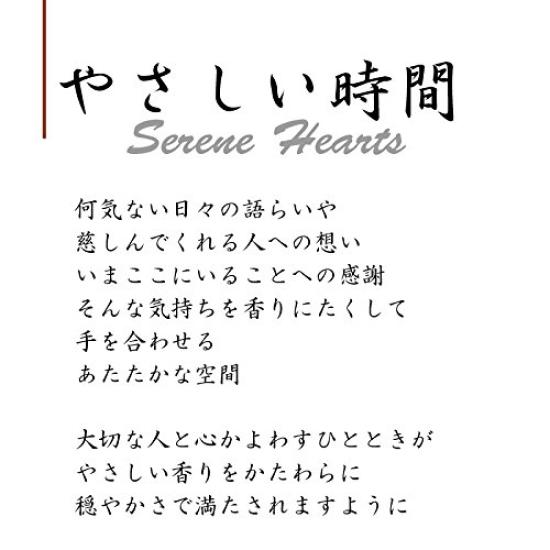 やさしい時間
Serene Hearts
何気ない日々の語らいや
慈しんでくれる人への想い
いまここにいることへの感謝
そんな気持ちを香りにたくして
手を合わせる
あたたかな空間
大切な人と心かよわすひとときが
やさしい香りをかたわらに
穏やかさで満たされますように